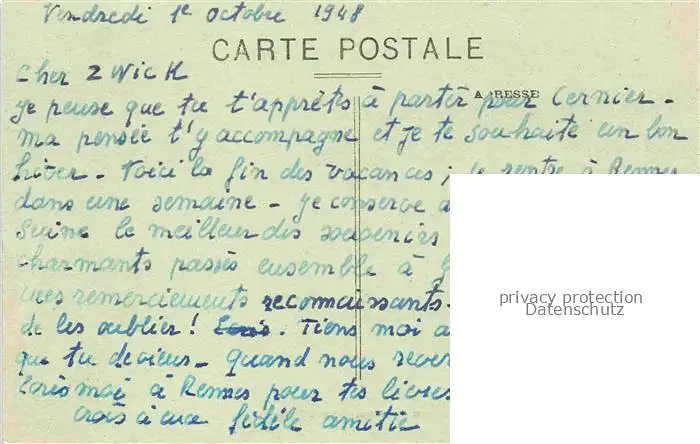 Vendredi 1e Octobre 1948
CARTE POSTALE
Cher ZWICK
A RESSE
je pense que tu t'apprêtes à partir pour Cernier -
ma pensée t'y accompagne et je te souhaite un bon
hiver - Voici la fin des vacances ; je rentre à Rennes
dans une semaine - je conserve d
Suisse le meilleur des souvenirs
charmants passés ensemble à G
mes remerciements reconnaissants -
de les oublier ! . Tiens moi a
que tu deviens - Quand nous rever
Ecris moi à Rennes pour tes livres
crois à ma fidèle amitié
privacy protection
Datenschutz